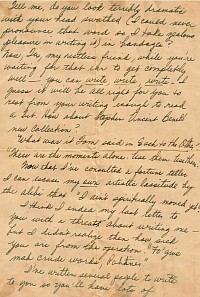 Tell me, do you look terribly dramatic
with your head swathed (I could never
pronounce that word so I take
pleasure in writing it) in bandages?
my restless friend, while you're
waiting for that ear to get completely
well — you can write write write. I
guess it will be all right for you to
rest from your writing enough to read
a bit. How about Stephen Vincent Benét
new collection?
What was it said in Back to the
"These are the moments alone
Now that I've consulted a fortune teller
I can excuse my own artistic lassitude by
the alibi that "I ain't spiritually moved yet."
I think I ended my last letter to
you with a threat about writing me —
but I didn't realize then how sick
you are from the operation. So "give
mah crude works,
I've urged several people to write
to you so you'll have lots of